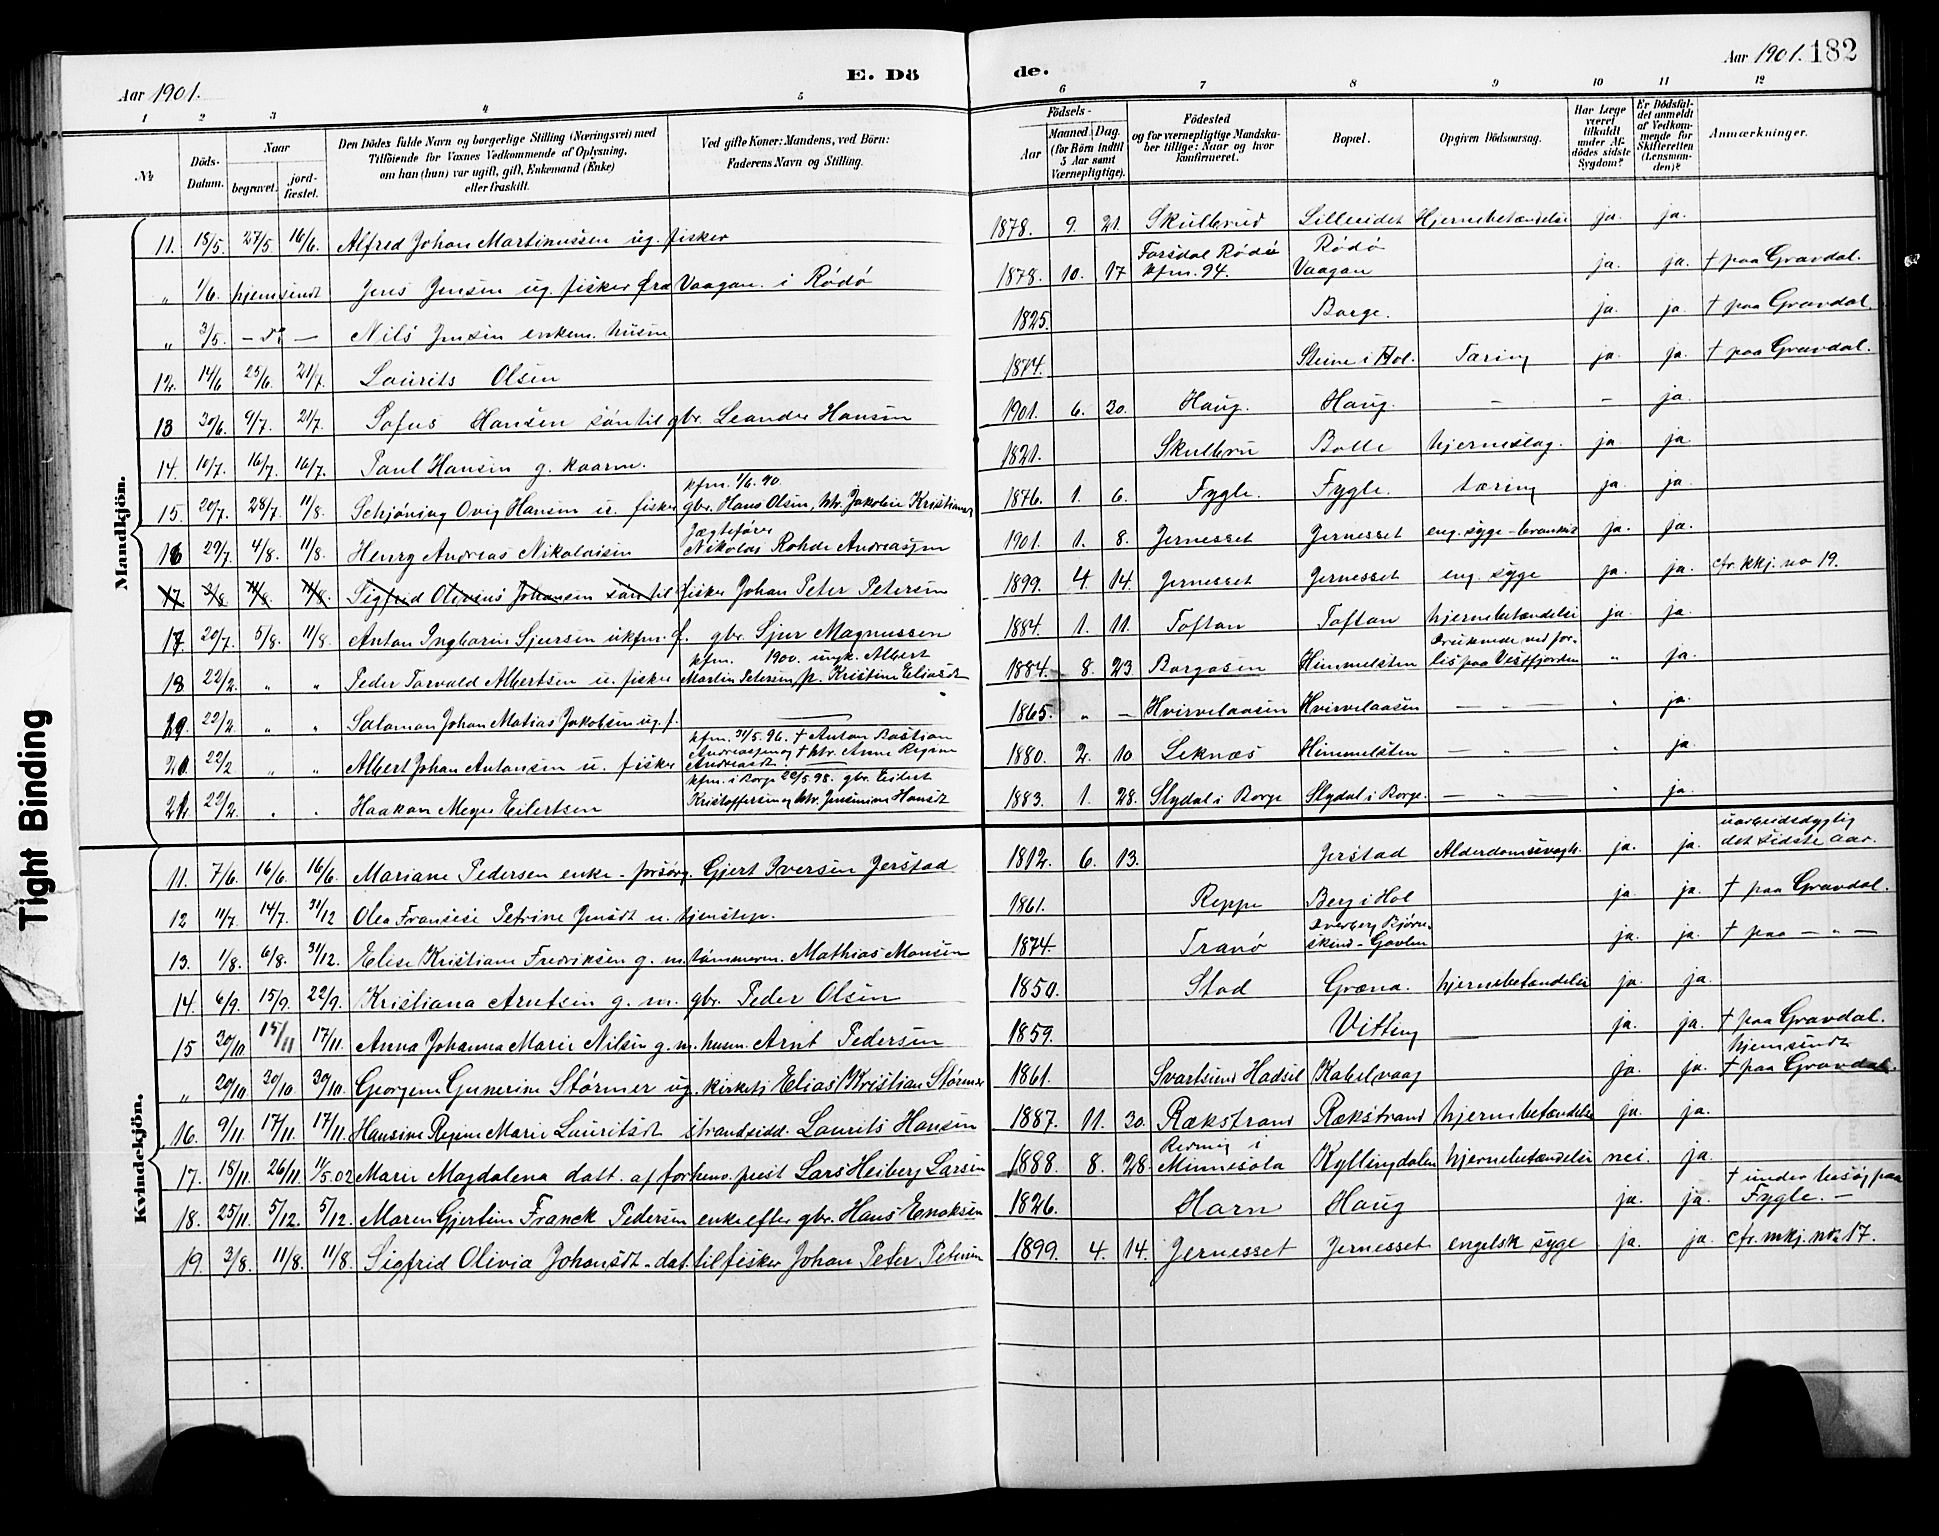 Aar 1901.
E. Dö
de.
Aar 1901.
182
1 2 3 4 5 6 7 8 9 10 11 12
№
Döds-
Datum.
Naar
begravet.
jord-
fæstet.
Den Dödes fulde Navn og borgerlige Stilling (Næringsvei) med
Tilföiende for Voxnes Vedkommende af Oplysning,
om han (hun) var ugift, gift, Enkemand (Enke)
eller fraskilt.
Ved gifte Koner: Mandens, ved Börn:
Faderens Navn og Stilling.
Födsels-
Aar
Maaned. Dag.
(for Börn indtil
5 Aar samt
Værnepligtige).
Födested
og for værnepligtige Mandska-
ber tillige: Naar og hvor
konfirmeret.
Bopæl.
Opgiven Dödsaarsag.
Har Læge
været
tilkaldt
under Af-
dödes sidste
Sygdom?
Er Dödsfal-
det anmeldt
af Vedkom-
mende for
Skifteretten
(Lensman-
den)?
Anmærkninger.
Mandkjön.
11. 18/5. 27/5 16/6. Alfred Johan Martinussen ug. fisker 1878. 9. 21. Skulbrud Silleidet Hjernebetændelse ja. ja.
" 1/6. hjemsendt Jens Jensen ug. fisker fra Vaagan i Rödö 1878. 10. 17 Forsdal Rödö kfm. 94. Rödö Vaagan ja. ja. † paa Gravdal.
" 3/5. — do — Nils Jensen enkem. husm 1825. Borge. ja. ja. † paa Gravdal.
12. 14/6 23/6. 21/7. Laurits Olsen 1874. Steine i Hol. Tæring ja. ja. † paa Gravdal.
13 30/6. 9/7. 21/7. Sofus Hansen sön til gbr. Leander Hansen 1901. 6. 30. Haug. Haug. — — ja.
14. 10/7. 16/7. 16/7. Paul Hansen g. kaarm. 1821. Skulbru Bolle hjerneslag. ja. ja.
kfm. 1/6. 90.
15. 20/7. 28/7. 11/8. Schjöning Ovig Hansen u. fisker gbr. Hans Olsen, htr. Jakobine Kristians 1876. 1. 6. Fygle. Fygle. tæring ja. ja.
Jægtefører
16 29/7. 4/8. 11/8. Henry Andreas Nikolaisen Nikolai Rohde Andreassen 1901. 1. 8. Jernesset Jernesset eng. syge - bronkit ja. ja.
17 3/8 11/8. 11/8. Sigfrid Olivius Johansen sön til fisker Johan Peter Petersen 1899. 4 14. Jernesset Jernesset eng. syge ja. ja. cfr. kkj. no 19.
17. 20/7. 5/8. 11/8. Anton Ingbarin Sjursen ukfm. f. gbr. Sjur Magnussen 1884. 1. 11. Toftan Toftan hjernebetændelse ja. ja.
kfm. 1900. ungk. Albert
18 22/2. " " Peder Torvald Albertsen u. fisker Martin Petersen, p. Kristine Eliasdt 1884. 8. 23. Borgosen Himmelsten Druknede ved for- lis paa Vestfjorden " ja.
19. 22/2. " " Salamon Johan Matias Jakobsen ug. f. — 1865. " — Hvirvelaasen Hvirvelaasen — " — " ja.
kfm. 31/5. 96. † Anton Bastian
20. 22/2 " " Albert Johan Antonsen u. fisker Andreassen og † htr. Anne Regine Andreasdt. 1880. 2. 10. Leknæs Himmelsten — " — " ja.
kfm. i Borge 22/5. 98. gbr. Eilert
21. 22/2. " " Haakon Meyer Eilertsen Kristoffersen og htr. Jensenine Hansdt 1883. 1. 28. Slydal i Borge Slydal i Borge. — " — " ja.
Kvindekjön.
11. 7/6. 16/6. 16/6. Mariane Pedersen enke - forsörg. Gjert Iversen Jerstad 1812. 6. 13. Jerstad Alderdomsvagh. ja. ja. uarbeidsdygtig det sidste aar.
12 11/7. 14/7. 31/12 Olea Fransese Petrine Jensdt u. tjenstep. 1861. Reppe Berg i Hol ja. ja. † paa Gravdal.
13. 1/8. 6/8. 31/12. Elise Kristiane Fredriksen g. m. tömmerm. Mathias Monsen 1874. Tranö Sverberg Björn- skind - Govlen ja. ja. † paa — " —
14. 6/9. 15/9. 22/9. Kristiana Arntsen g. m. gbr. Peder Olsen 1850. Stad Græna. hjernebetændelse ja. ja.
15 30/10 15/11 17/11. Anna Johanna Marie Nilsen g. m. husm. Arnt Pedersen 1859. Vitting ja. ja. † paa Gravdal.
" 20/10 30/10 30/10. Georgine Gunerine Störmer ug. kirkets. Elias Kristian Störmer 1861. Svartsund Hadsel Kabelvaag ja. ja. hjemsendt † paa Gravdal.
16. 9/11. 17/11. 17/11. Hansine Regine Marie Lauritsdt strandsidd. Laurits Hansen 1887. 11. 30. Rækstrand Rækstrand hjernebetændelse ja. ja.
17. 18/11. 26/11. 11/5.02 Marie Magdalena datt. af forhenv. prest Lars Heiberg Larsen 1888. 8. 28. Redning i Minnesota Kyllingdalen hjernebetændelse nei. ja.
18. 25/11. 5/12. 5/12. Maren Gjertine Franck Pedersen enke efter gbr. Hans Enoksen 1826. Horn Haug ja. ja. † under besög paa Fygle. —
19. 3/8. 11/8. 11/8. Sigfrid Olivia Johansdt - dat. til fisker Johan Peter Petersen 1899. 4. 14. Jernesset Jernesset engelsk syge ja. ja. cfr. mkj. no. 17.
Tight Binding